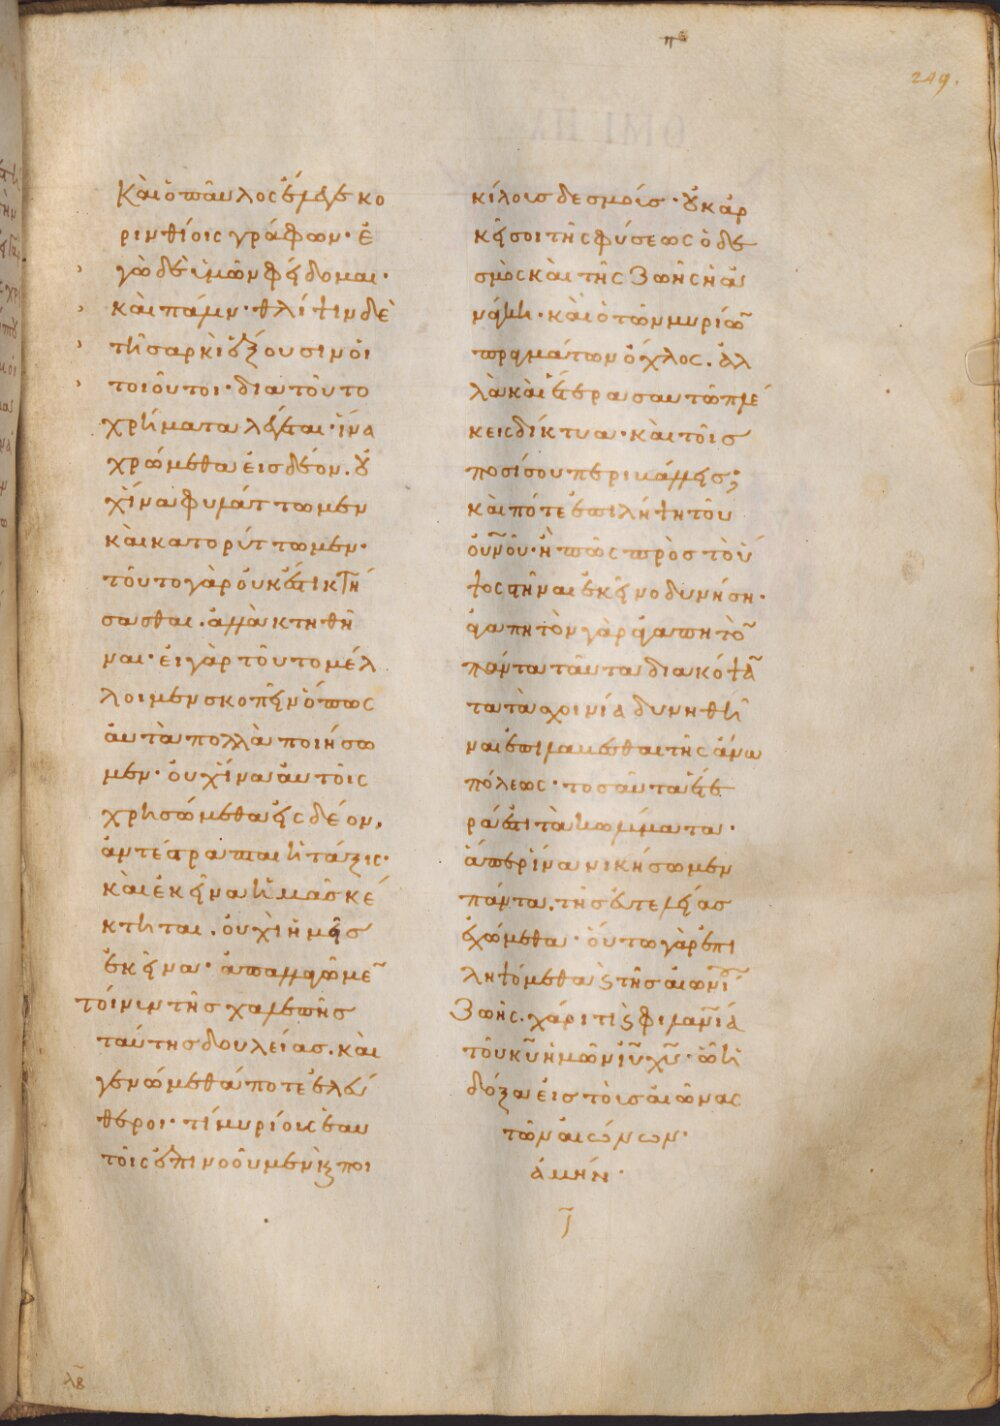 πϛ
249.
Καὶ ὁ παῦλος ἔλεγε κο
ρινθίοις γράφων· ἐ
γὼ δὲ ὑμῶν φείδομαι·
καὶ πάλιν· θλίψιν δὲ
τῆ σαρκὶ ἕξουσιν οἱ
τοιοῦτοι· διατοῦτο
χρήματα λέγεται· ἵνα
χρώμεθα εἰς δέον. οὐ
χ ἵνα φυλάττωμεν
καὶ κατορύττωμεν·
τοῦτο γὰρ οὐκ ἔστι κτή
σασθαι. ἀλλὰ κτηθῆ
ναι· εἰ γὰρ τοῦτο μέλ
λοιμεν σκοπεῖν ὅπως
αὐτὰ πολλὰ ποιήσω
μεν· οὐχ ἵνα αὐτοῖς
χρησώμεθα εἰς δέον,
ἀντέστραπται ἡ τάξις·
καὶ ἐκεῖνα ἡμᾶς κέ
κτηται. οὐχὶ ἡμεῖς
ἐκεῖνα· ἀπαλλαγῶμε̄
τοίνυν τῆς χαλεπῆς
ταύτης δουλείας. καὶ
γενώμεθά ποτε ἐλεύ
θεροι· τί μυρίοις ἑαυ
τοῖς ἐπινοοῦμεν καὶ ποι
κίλοις δεσμοῖς· οὐκ ἀρ
κεῖ σοι τῆς φύσεως ὁ δε
σμὸς καὶ τῆς ζωῆς ἡ ἀ
νάγκη· καὶ ὁ τῶν μυρίω̄
πραγμάτων ὄχλος. ἀλ
λὰ καὶ ἕτερα σαυτῶ πλέ
κεις δίκτυα· καὶ τοῖς
ποσί σου περιβάλλεις;
καὶ πότε ἐπιλήψη τοῦ
οὐνοῦ· ἢ πῶς πρὸς τὸ ὕ
ψος στῆναι ἐκεῖνο δυνήση·
ἀγαπητὸν γὰρ ἀγαπητὸ̄
πάντα ταῦτα διακόψᾱ
τα τὰ σχοινία δυνηθῆ
ναι ἐπιλαβέσθαι τῆς ἄνω
πόλεως· τοσαῦτα ἕτε
ρά ἐστι τὰ κωλύματα·
ἅπερ ἵνα νικήσωμεν
πάντα. τῆς εὐτελείας
ἐχώμεθα· οὕτω γὰρ ἐπι
ληψόμεθα καὶ τῆς αἰωνί̄
ζωῆς. χάριτι καὶ φιλαν̄ία
τοῦ κῡ ἡμῶν ιῡ χῡ· ὧ ἡ
δόξα εἰς τοὺς αἰῶνας
τῶν αἰώνων·
ἀμήν·
λβ